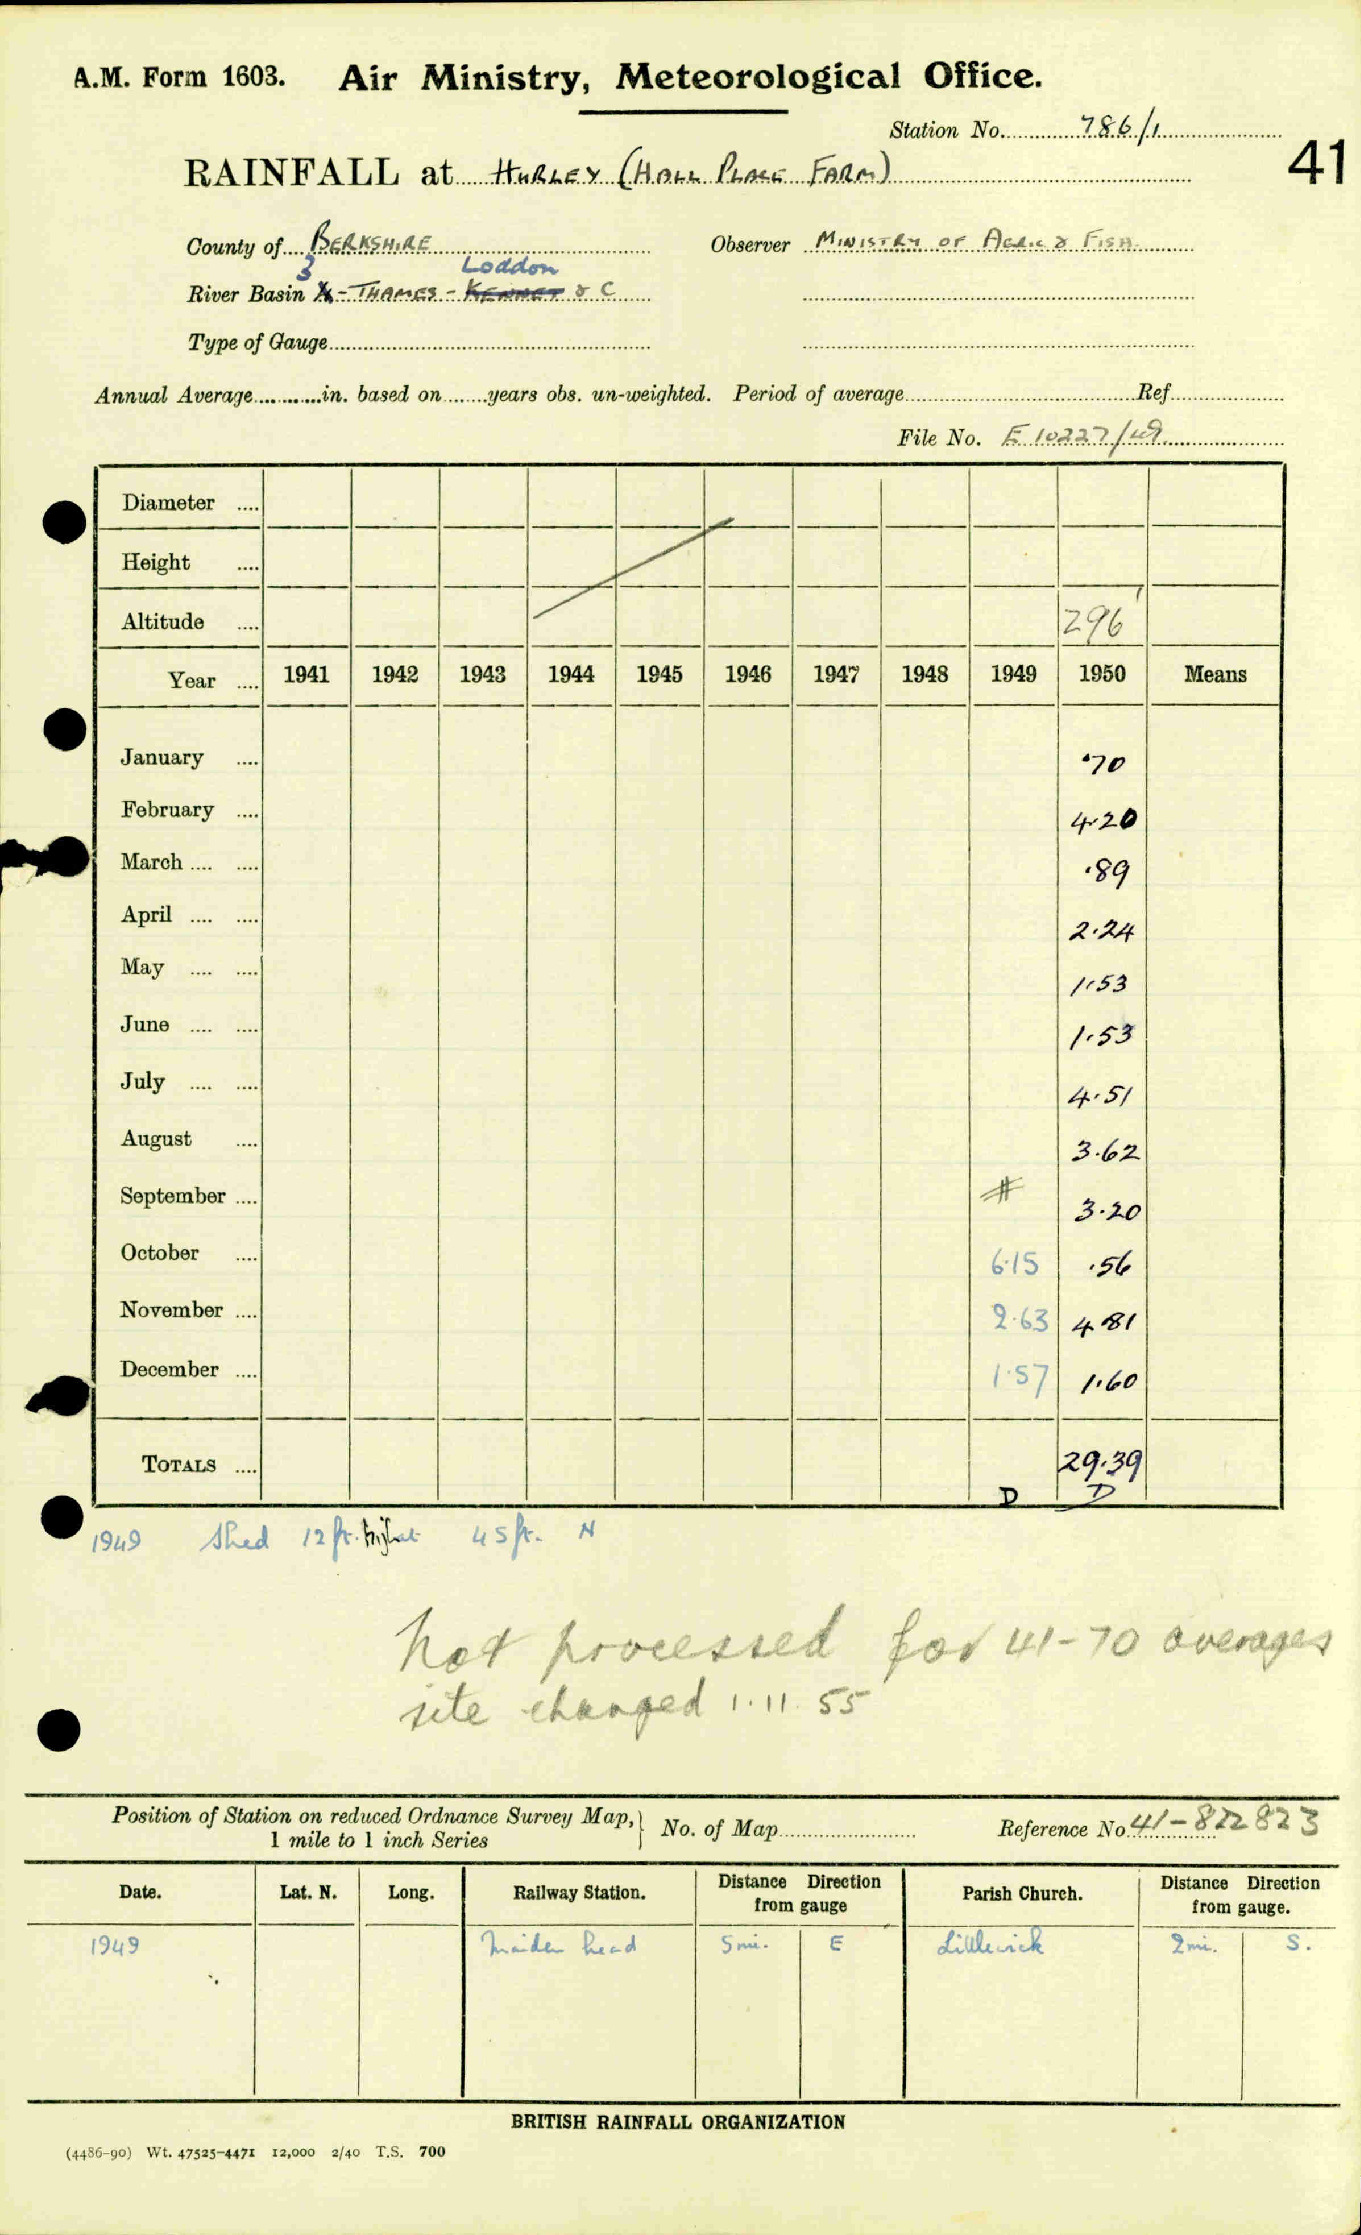 A.M. Form 1603. Air Ministry, Meteorological Office.
Station No. 786/1
41
RAINFALL at HURLEY (HALL PLACE FARM)
County of BERKSHIRE Observer MINISTRY OF AGRIC & FISH.
3 Loddon
River Basin 4 - THAMES - KENNET & C
Type of Gauge
Annual Average in. based on years obs. un-weighted. Period of average Ref
File No. E 10227/49
Diameter
Height
Altitude 296'
Year 1941 1942 1943 1944 1945 1946 1947 1948 1949 1950 Means
January ·70
February 4·20
March ·89
April 2·24
May 1·53
June 1·53
July 4·51
August 3·62
September # 3·20
October 6·15 ·56
November 2·63 4·81
December 1·57 1·60
TOTALS 29·39
D D
1949 Shed 12 ft. high at 45 ft. N
Not processed for 41-70 averages
site changed 1·11·55
Position of Station on reduced Ordnance Survey Map, } No. of Map Reference No. 41-822823
1 mile to 1 inch Series
Date. Lat. N. Long. Railway Station. Distance from gauge Direction Parish Church. Distance from gauge. Direction
1949 Maidenhead 5 mi. E Littlewick 2 mi. S.
BRITISH RAINFALL ORGANIZATION
(4486-90) Wt. 47525-4471 12,000 2/40 T.S. 700